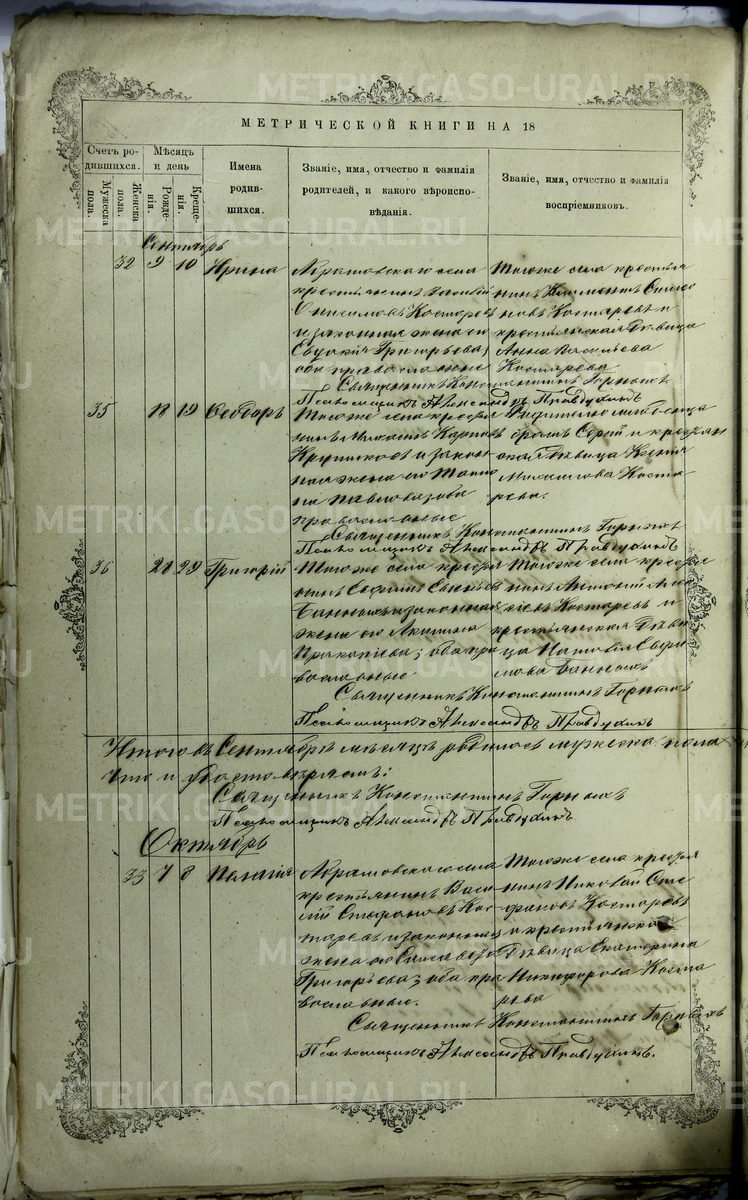 МЕТРИЧЕСКОЙ КНИГИ НА 18
Счетъ ро-
дившихся.
Мѣсяцъ
и день
Мужеска
пола.
Женска
пола.
Рожде-
нія.
Креще-
нія.
Имена
родив-
шихся.
Званіе, имя, отчество и фамилія
родителей, и какого вѣроиспо-
вѣданія.
Званіе, имя, отчество и фамилія
воспріемниковъ.
Сентябрь
32 9 10 Ирина
Абрамовскаго села
крестьянинъ
Онисимовъ Костарев
и законная жена его
Евдокія Григорьева,
оба православные
Тогоже села крестья
нинъ Климентъ
новъ Костаревъ и
крестьянская дѣвица
Анна Васильева
Костарева
Священникъ Константинъ Горныхъ
Псаломщикъ Александръ Правдухинъ
35 18 19 Ѳеодоръ
Тогоже села крестья
нинъ Карпов
и закон
ная жена его Татья
на Павлова оба
православные
братъ Сергій и крестьян
ская дѣвица Ксенія
Коста
рева.
Священникъ Константинъ Горныхъ
Псаломщикъ Александръ Правдухинъ
36 28 29 Григорій
Тогоже села крестья
нинъ Ефимъ
Банныхъ и законная
жена его Акилина
Прокопіева; оба пра
вославные
Тогоже села крестья
нинъ Антоній
Костаревъ и
крестьянская дѣви
ца Наталія Ефи
мова Банныхъ
Священникъ Константинъ Горныхъ
Псаломщикъ Александръ Правдухинъ
Итого въ Сентябрѣ мѣсяцѣ родилось мужеска пола
Что и удостовѣряемъ:
Священникъ Константинъ Горныхъ
Псаломщикъ Александръ Правдухинъ
Октябрь
33 7 8 Пелагія
Абрамовскаго села
крестьянинъ Васи
лій Стефановъ Кос
таревъ и законная
жена его Елисавета
Григорьева; оба пра
вославные.
Тогоже села крестья
нинъ Николай Сте
фановъ Костаревъ
и крестьянская
дѣвица Екатерина
Никифорова Коста
рева
Священникъ Константинъ Горныхъ
Псаломщикъ Александръ Правдухинъ.
METRIKI.GASO-URAL.RU